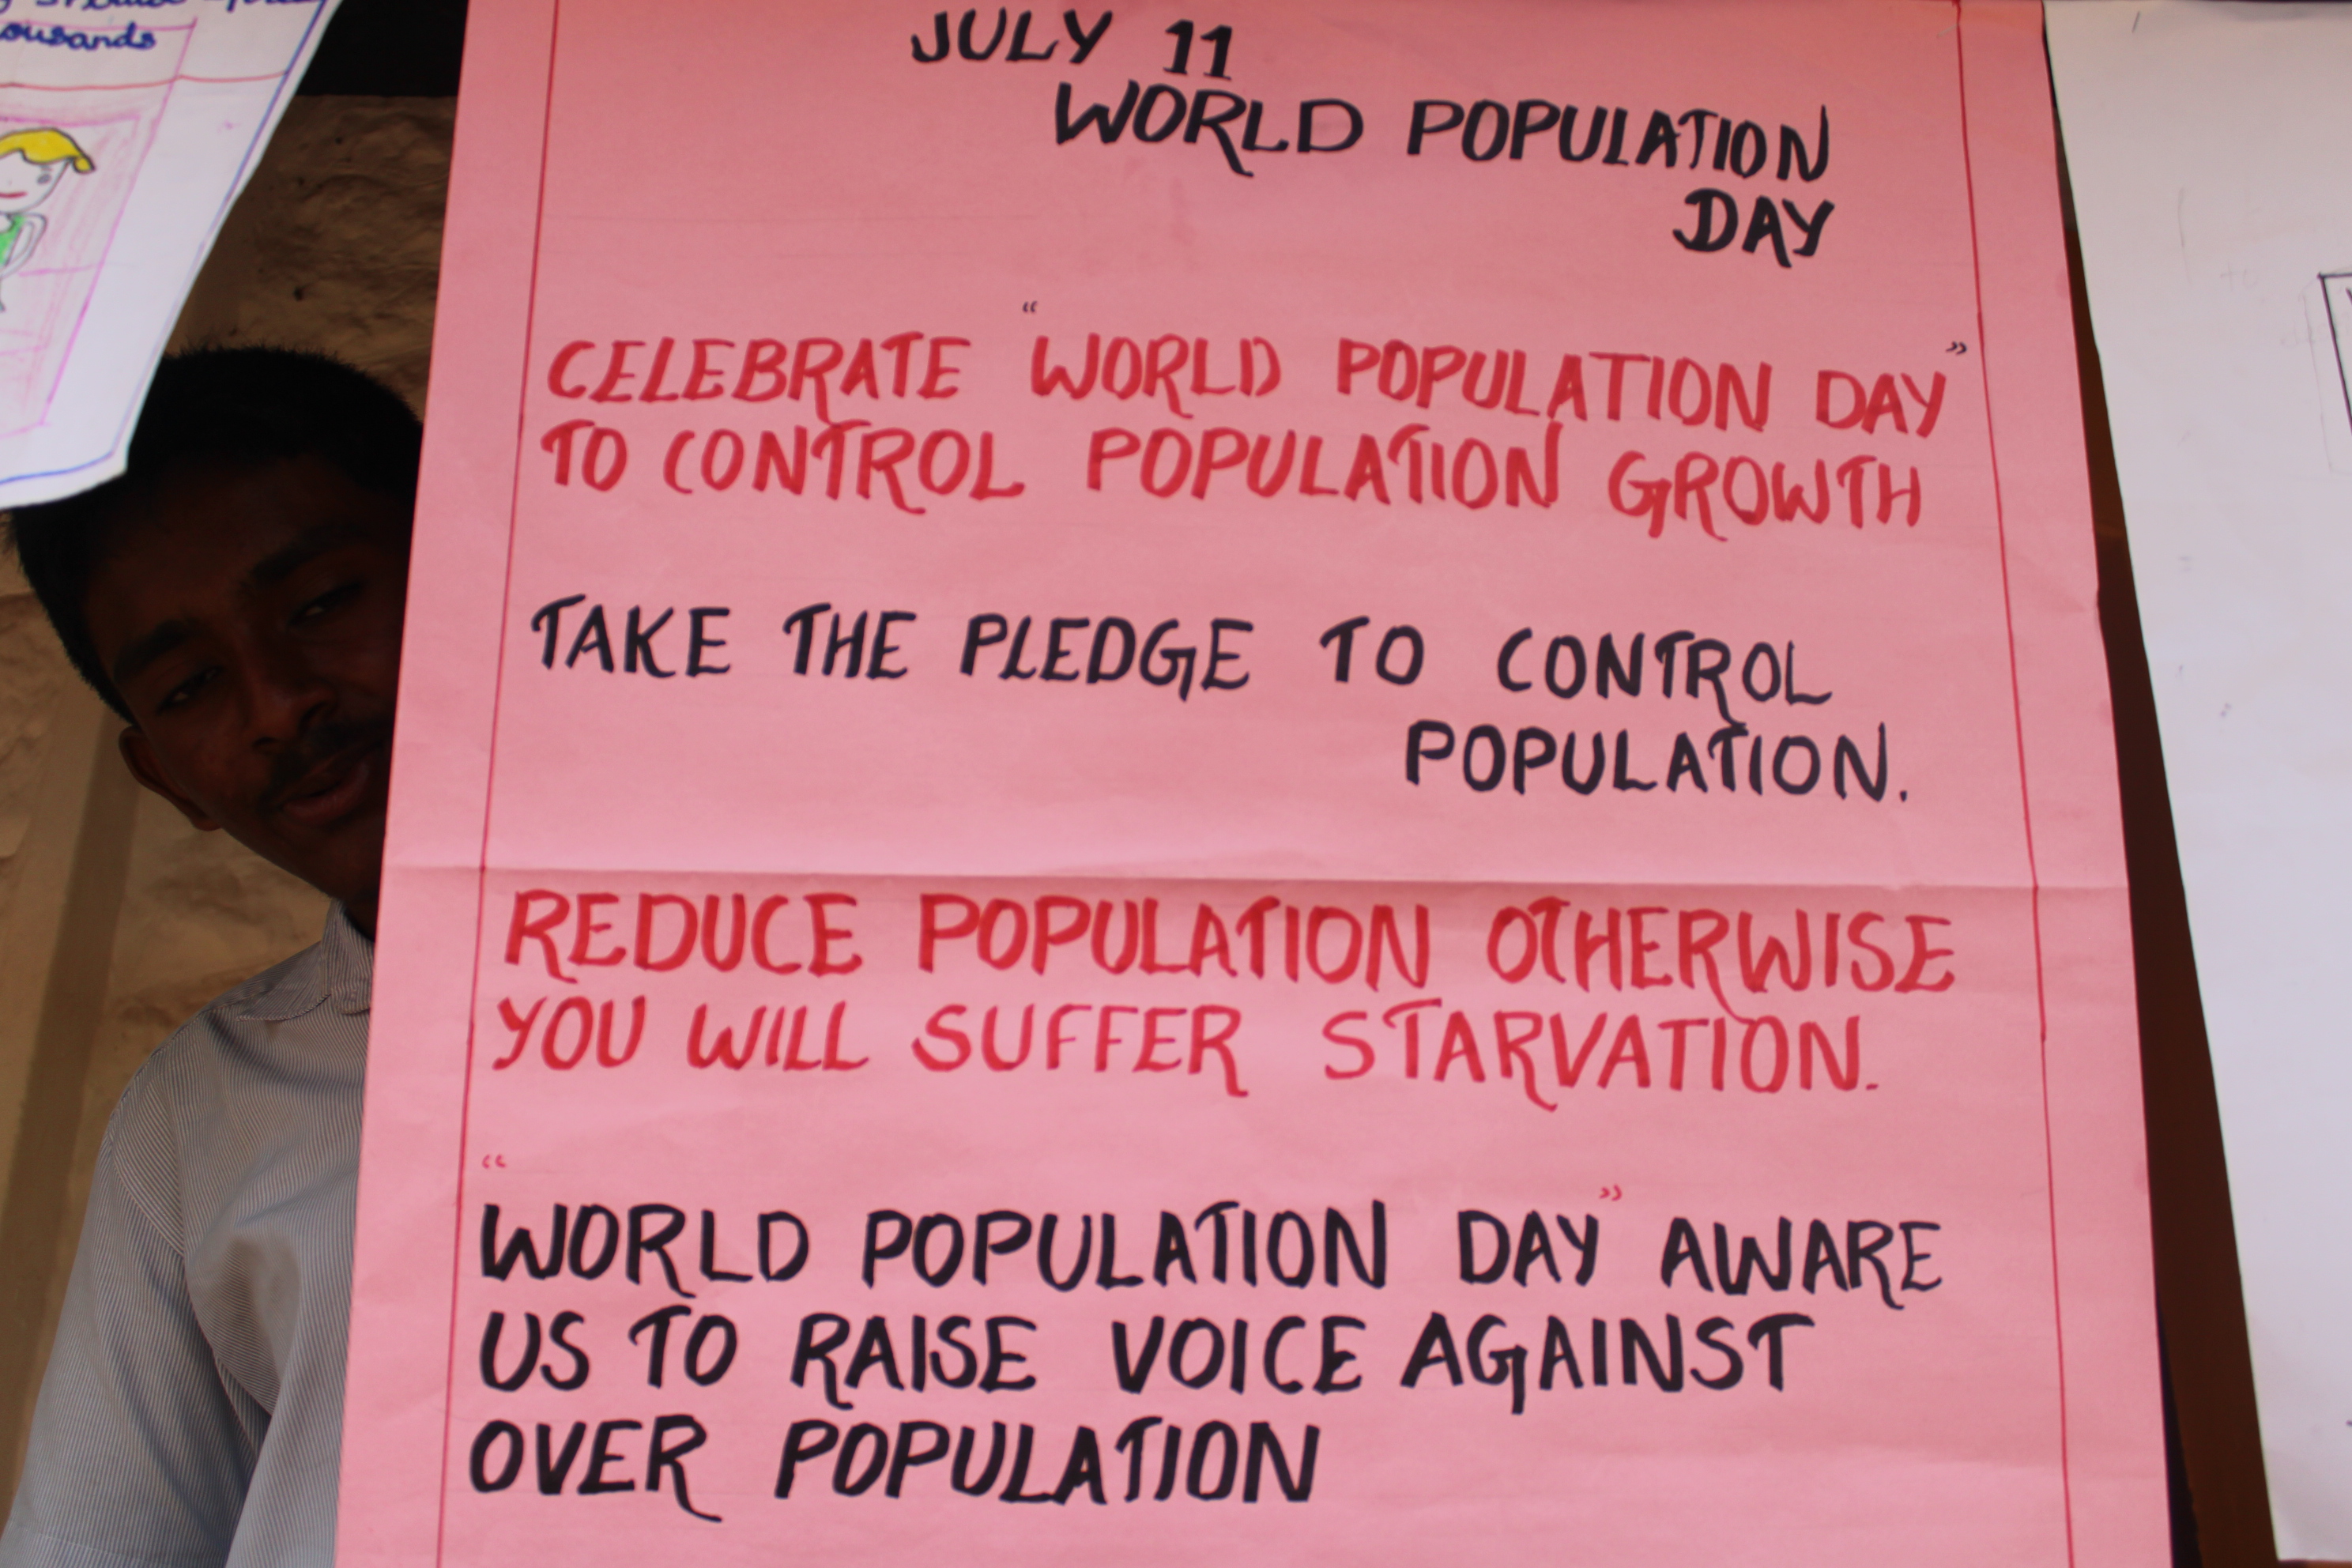 ousands
JULY 11
WORLD POPULATION
DAY
CELEBRATE "WORLD POPULATION DAY"
TO CONTROL POPULATION GROWTH
TAKE THE PLEDGE TO CONTROL
POPULATION.
REDUCE POPULATION OTHERWISE
YOU WILL SUFFER STARVATION.
"WORLD POPULATION DAY" AWARE
US TO RAISE VOICE AGAINST
OVER POPULATION